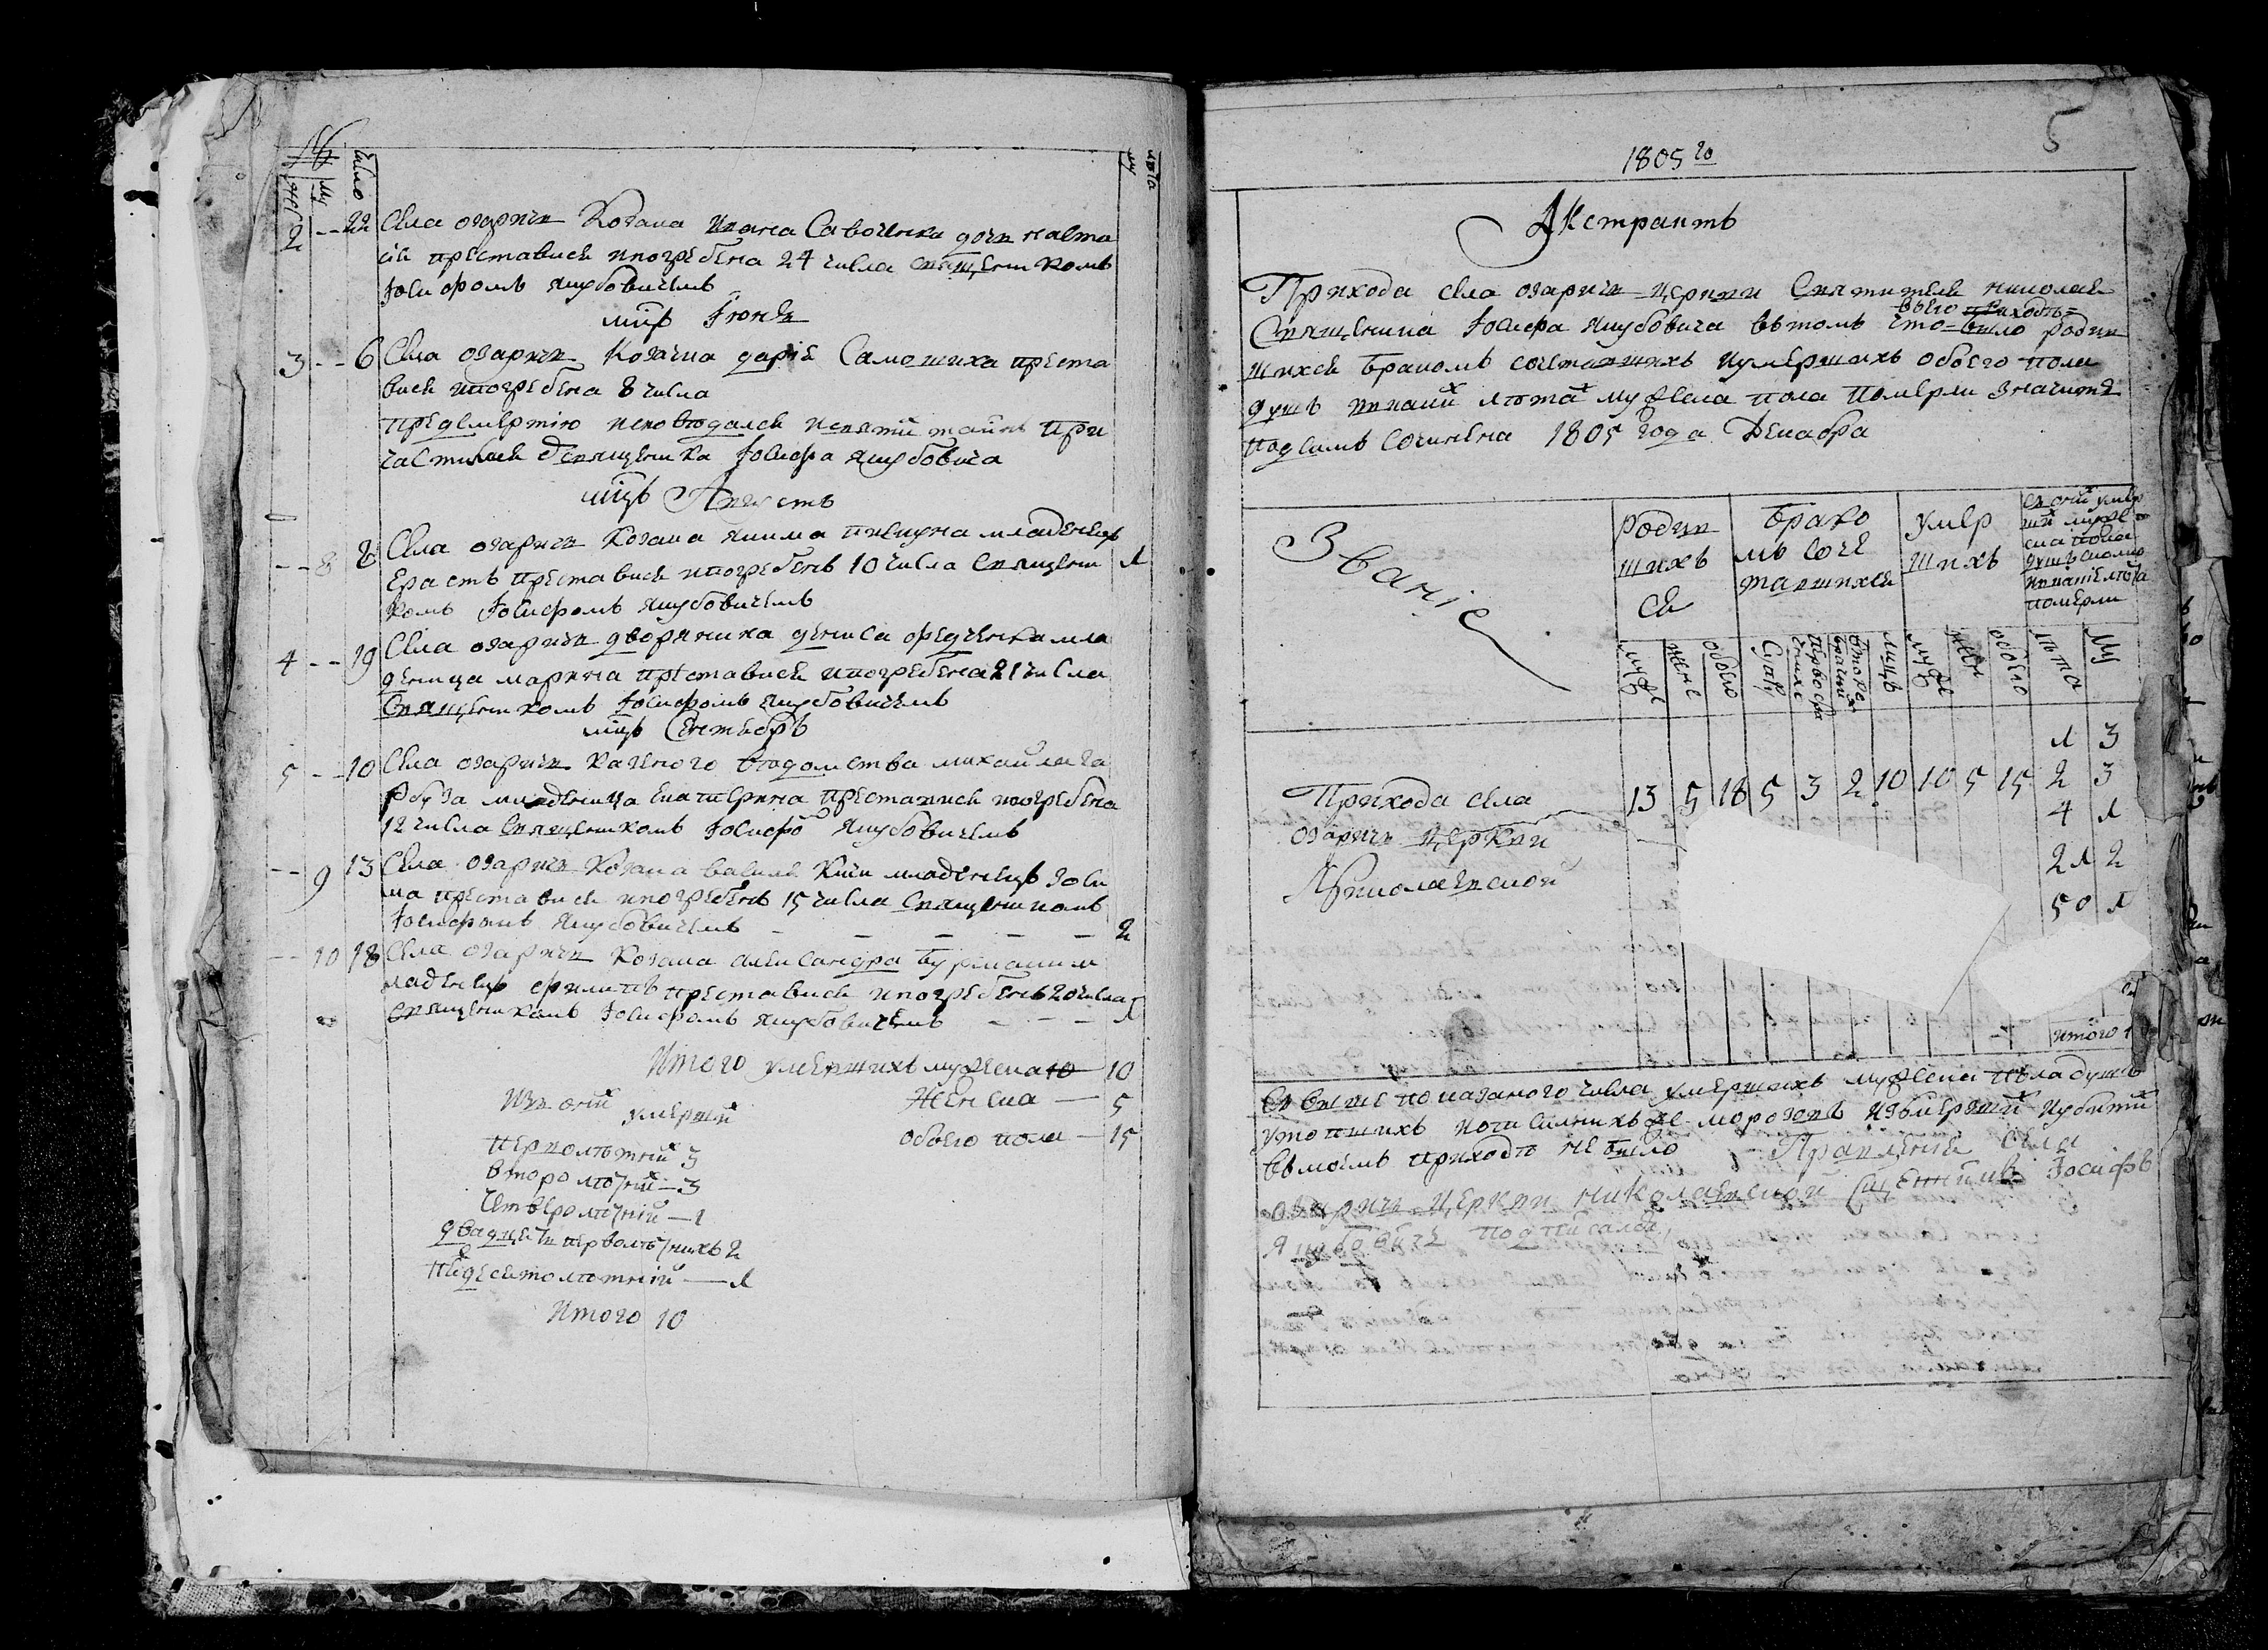 №
жен
му
число
лѣта
му
2 -- 22 Села озаричь козака ивана Савоченка дочь наста
сія преставися ипогребена 24 числа священникомъ
Іосифомъ якубовичемъ
мцъ Іюнь
3 -- 6 Села озаричь козачка дарія Самошиха преста
вися ипогребена 8 числа
предсмертію исповѣдалася исвятых таинъ при
частилася священника Іосифа якубовича
мцъ Августъ
-- 8 8 Села озаричь козака якима пивцуна младенецъ
Ерастъ преставися ипогребенъ 10 числа священи 1
комъ Іосифомъ якубовичемъ
4 -- 19 Села озаричь дворянина дениса федченка мла
деница марина преставися ипогребена 21 числа
Священикомъ Іосифомъ якубовичемъ
мцъ Сентябръ
5 -- 10 Села озаричь казеного вѣдомства михаила га
рбуза младеница екатерина преставися ипогребена
12 числа священикомъ Іосифо якубовичемъ
-- 9 13 Села озаричь козака василя младенецъ зоси
ма преставися ипогребенъ 15 числа священикомъ
Іосифомъ якубовичемъ - - - - - 2
-- 10 18 Села озаричь козака александра м
ладенецъ филипъ преставися ипогребенъ 20 числа
священикомъ Іосифомъ якубовичемъ - - - 1
Итого умершихъ мужеска 10
Женска — 5
обоего пола — 15
Изъ оных умерших
перволѣтних 3
второлѣтних — 3
Четверолѣтних — 1
двадцеть перволѣтнихъ 2
пядесятолѣтних — 1
Итого 10
5
1805 го
Акстрактъ
Прихода села озаричь церкви Святителя николая
Священика Іосифа якубовича вътомъ всего приходѣ что было родив
шихся бракомъ сочетавшихъ иумершихъ обоего пола
душъ иваких лѣтах мужеска пола померли значитъ
подсимъ Сочинена 1805 года Декабра
Званіе
Родив
шихъ
ся
Брако
мъ соче
тавшихся
умер
шихъ
съ оних умер
ших муже
ска пола
душъ сколко
ивакіе лѣта
померли
муже
жене
обоего
лицъ
муже
жен
обоего
лѣта
му
1 3
Прихода села 13 5 18 5 3 2 10 10 5 15 2 3
озаричь церкви 4 1
Николаевской 21 2
50 1
итого 1
Съ више показаного числа умершихъ мужеска пола душъ
утопшихъ морозовъ измершихъ иубитих
въмоемъ приходѣ не было Правленія села
озаричь церкви николаевской священникъ Іосифъ
Якубовичъ подписался